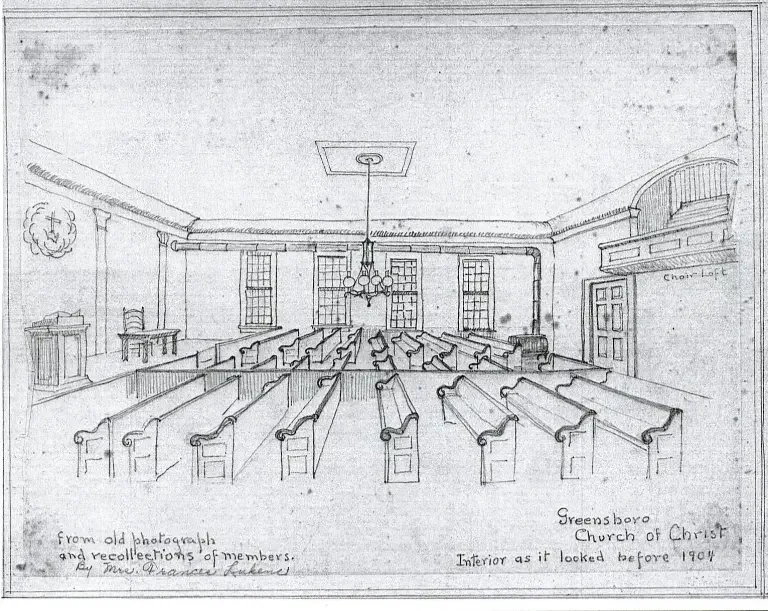 Choir Loft
Greensboro
Church of Christ
Interior as it looked before 1904
from old photograph
and recollections of members.
By Mrs. Frances Lukens